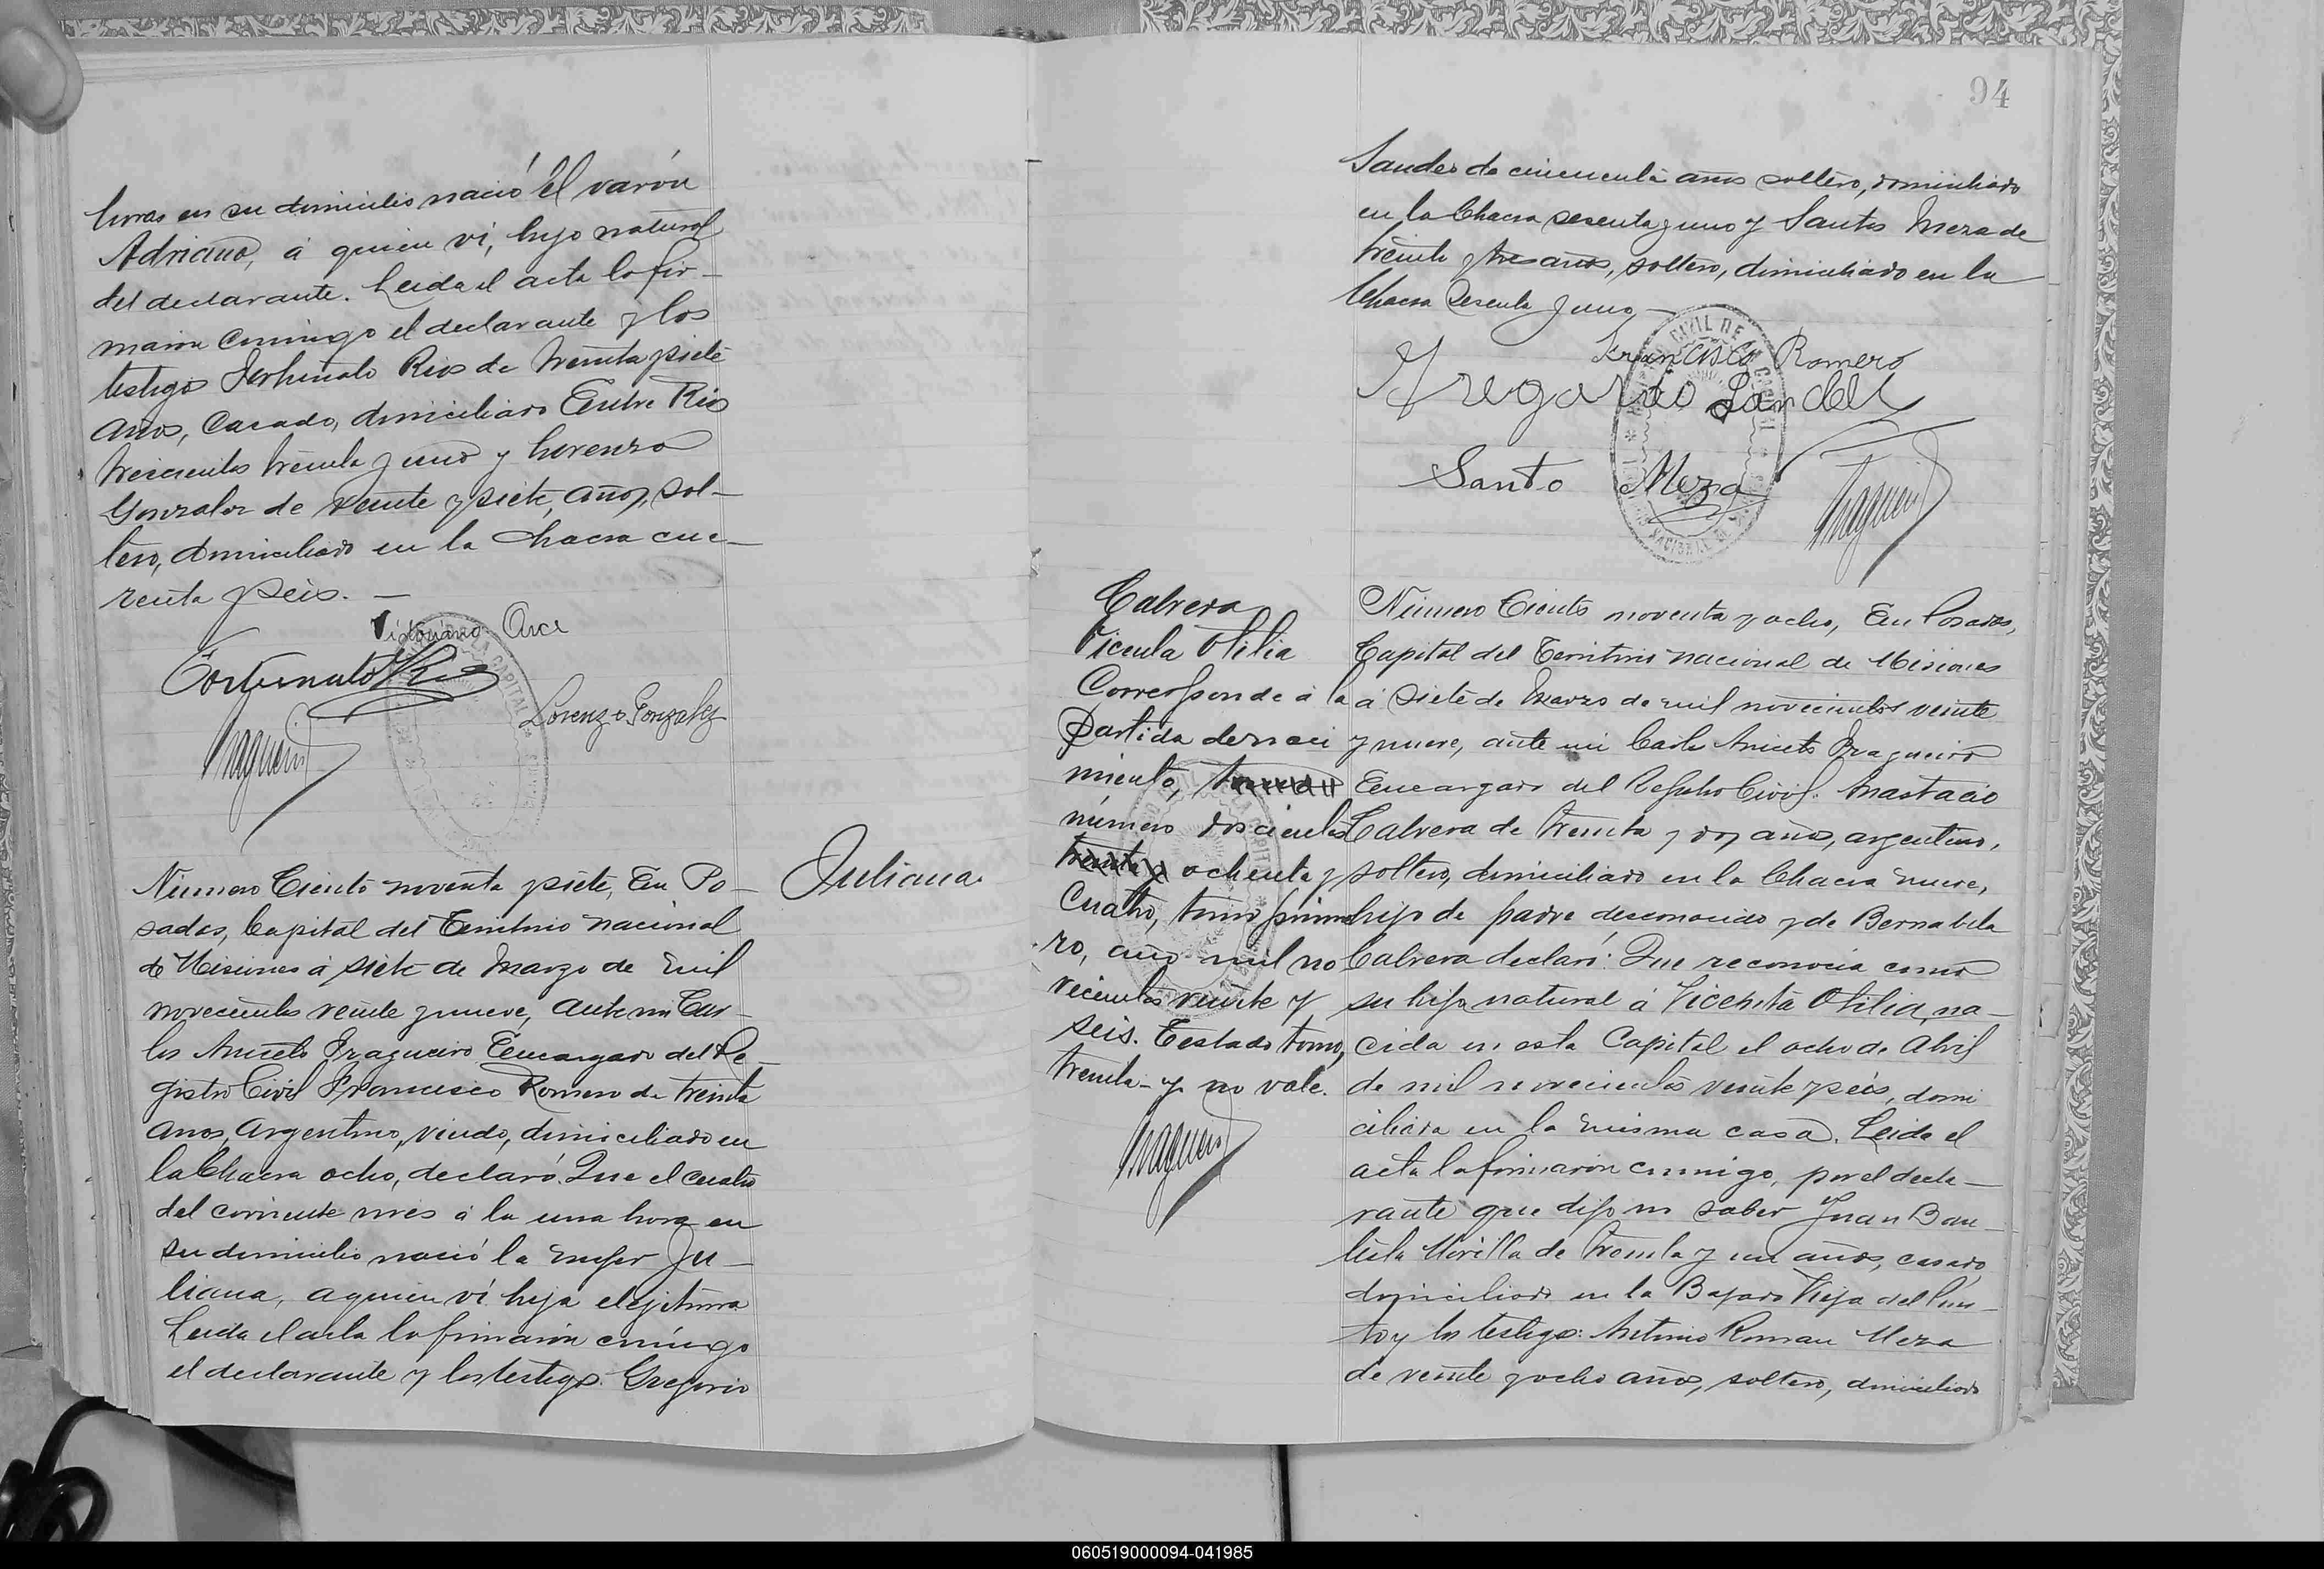 horas en su domicilio nació el varón
Adriano, á quien ví, hijo natural
del declarante. Leida el acta la fir-
maron conmigo el declarante y los
testigos Fortunato Rios de treinta y siete
años, casado, domiciliado Entre Rios
trescientos treinta y uno y Lorenzo
Gonzalez de veinte y siete años, sol-
tero, domiciliado en la chacra cua-
renta y seis. —
Victoriano Arce
Fortunato Rios
Lorenzo Gonzalez
Fragueiro
Número Ciento noventa y siete, En Po-
sadas, Capital del Territorio nacional
de Misiones á siete de Marzo de mil
novecientos veinte y nueve, ante mi Car-
los Aniceto Fragueiro Encargado del Re-
gistro Civil Francisco Romero de treinta
años, Argentino, viudo, domiciliado en
la Chacra ocho, declaró: Que el cuatro
del corriente mes á la una hora en
su domicilio nació la mujer Ju-
liana, a quien ví hija elejitima
Leida el acta la firmaron conmigo
el declarante y los testigos Gregorio
Juliana
94
Sandes de cincuenta años soltero, domiciliado
en la Chacra sesenta y uno y Santos Meza de
treinta y tres años, soltero, domiciliado en la
Chacra Sesenta y uno —
Francisco Romero
Gregorio Sandes
Santo Meza
Fragueiro
Cabrera
Vicenta Otilia
Corresponde á la
Partida de naci
miento,
número doscientos
treinta y ochenta y
cuatro, tomo prime
ro, año mil no
vecientos veinte y
seis. Testado tomo,
treinta - y no vale.
Fragueiro
Número Ciento noventa y ocho, En Posadas,
Capital del Territorio nacional de Misiones
á siete de Marzo de mil novecientos veinte
y nueve, ante mi Carlos Aniceto Fragueiro
Encargado del Registro Civil. Anastacio
Cabrera de treinta y dos años, argentino,
soltero, domiciliado en la Chacra nueve,
hijo de padre desconocido y de Bernabela
Cabrera declaró: Que reconocia como
su hija natural á Vicenta Otilia, na-
cida en esta Capital el ocho de Abril
de mil novecientos veinte y seis, domi
ciliada en la misma casa. Leida el
acta la firmaron conmigo, por el decla-
rante que dijo no saber Juan Bau-
tista Morilla de treinta y un años, casado,
domiciliado en la Bajada Vieja del Puer-
to y los testigos: Antonio Roman Meza
de veinte y ocho años, soltero, domiciliado
060519000094-041985